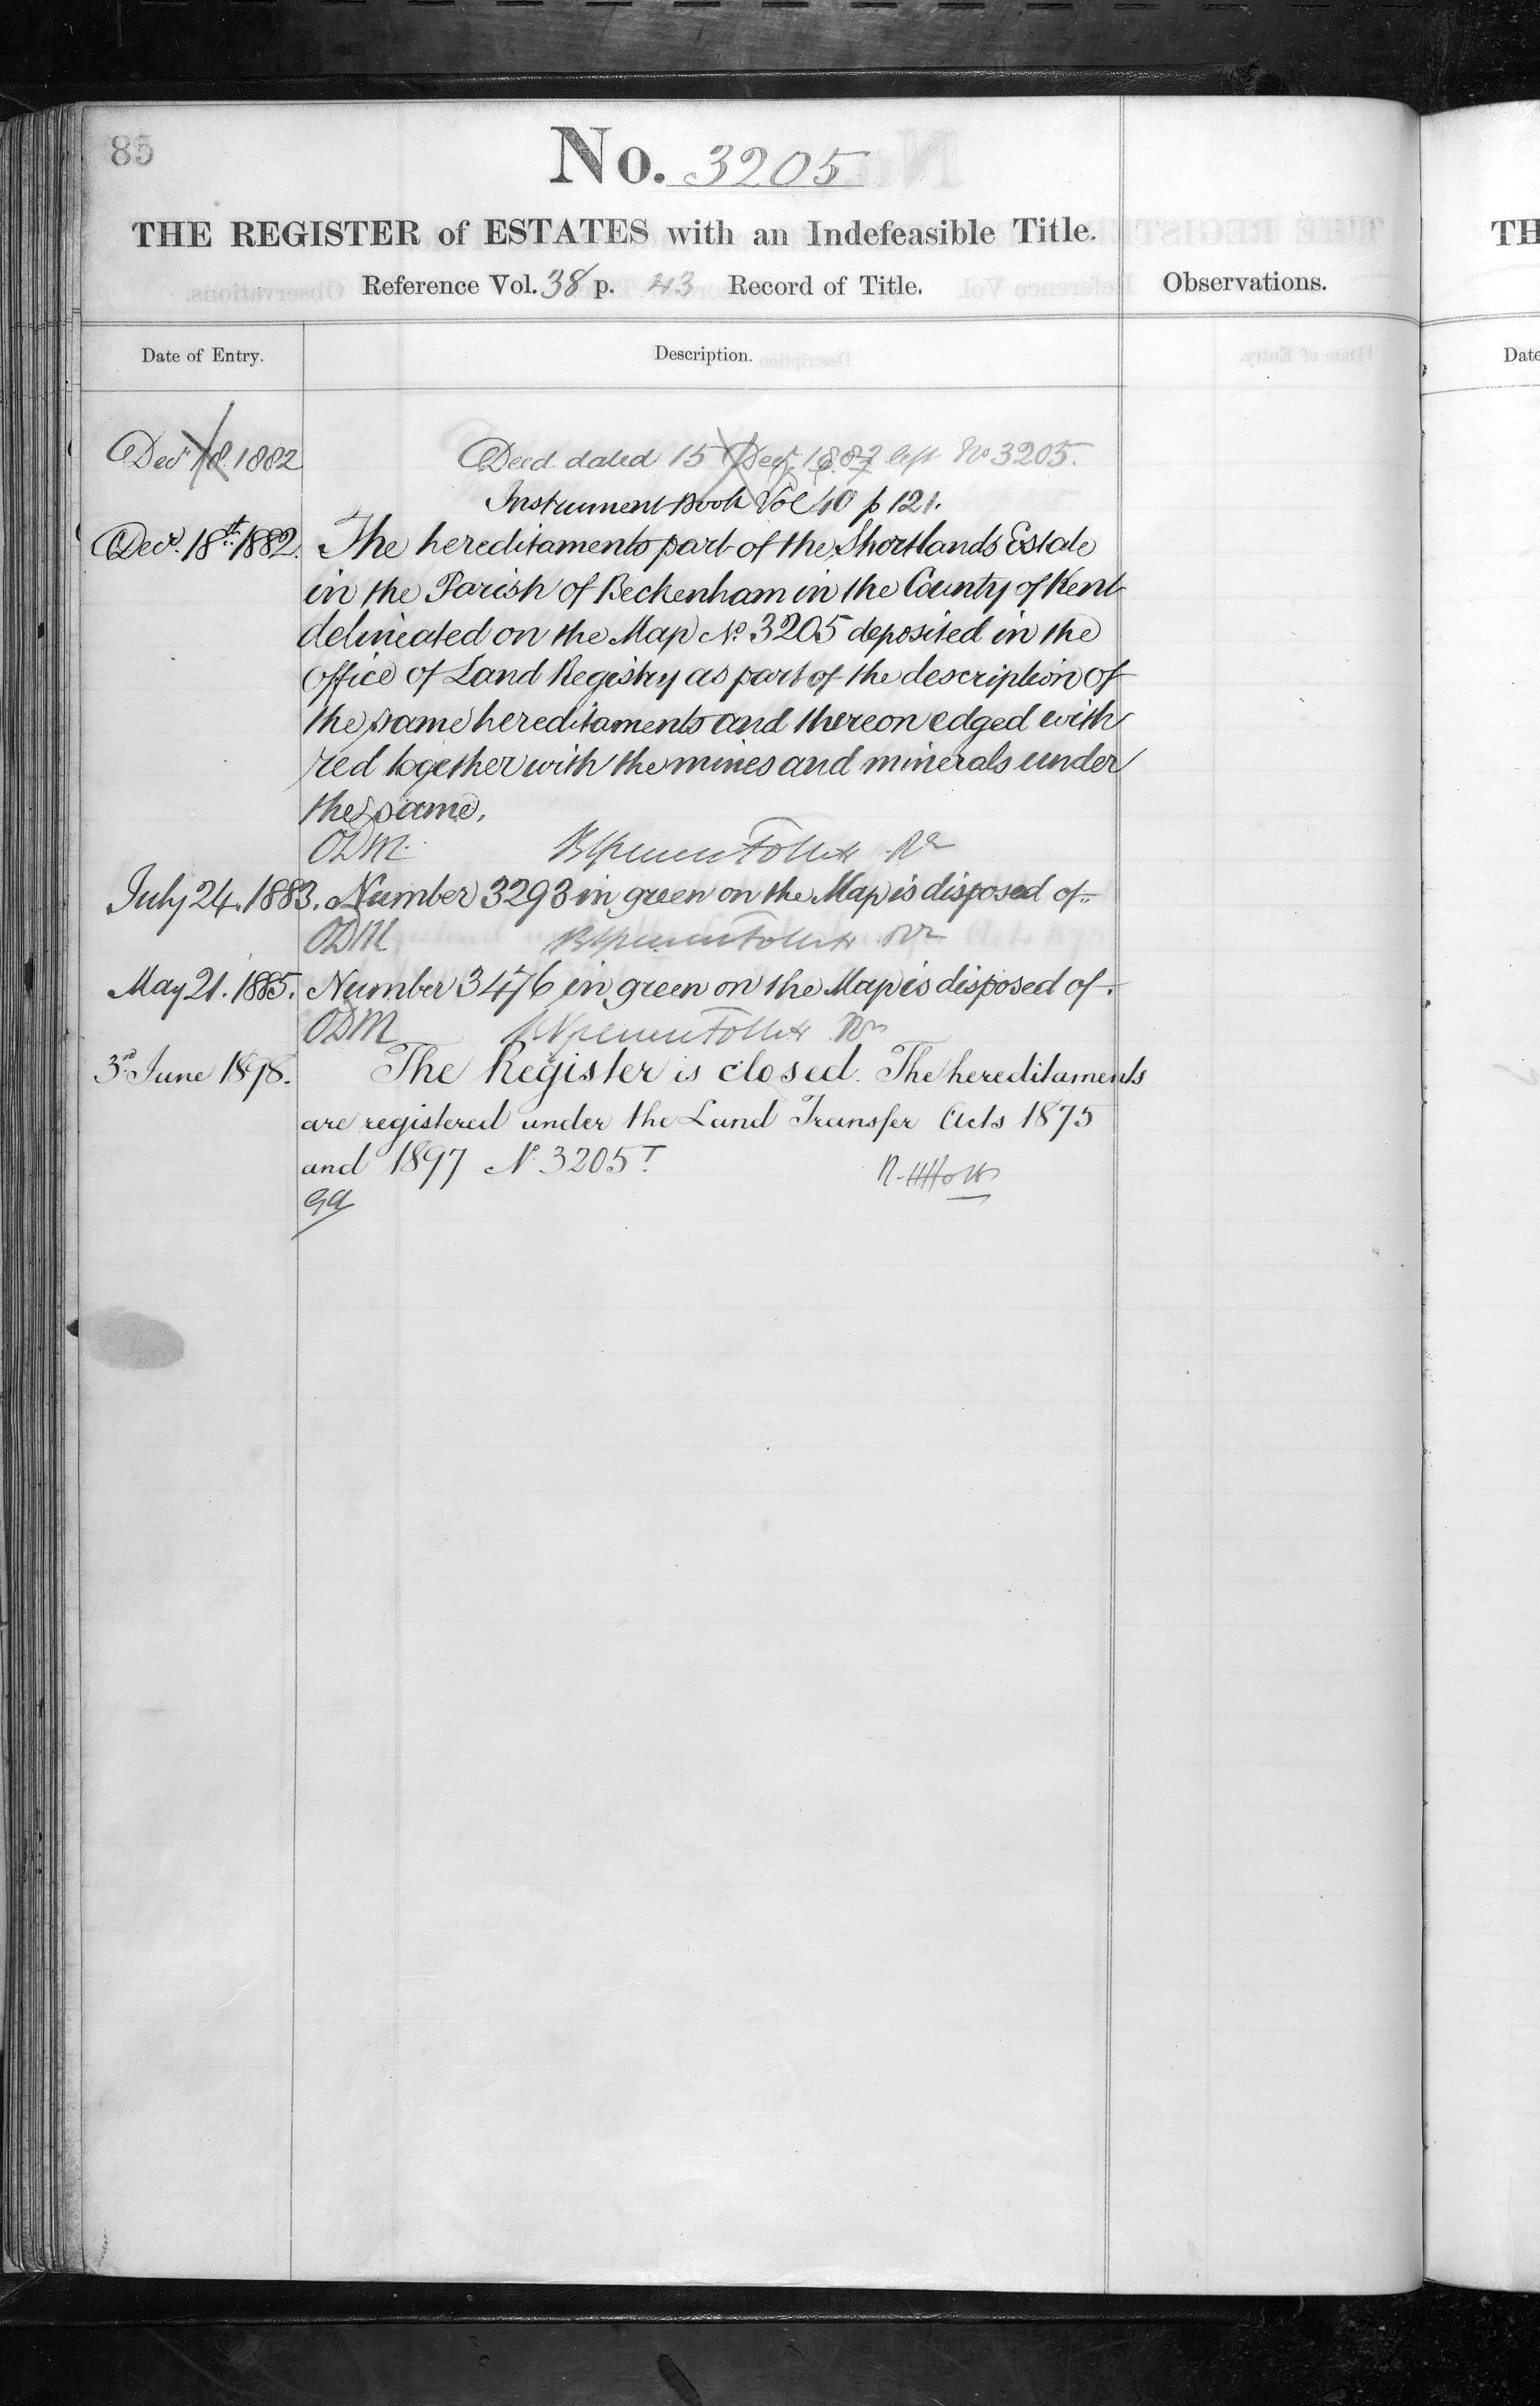 85
No. 3205
THE REGISTER of ESTATES with an Indefeasible Title.
Reference Vol. 38 p. 43 Record of Title.
Observations.
Date of Entry.
Description.
Decr 18. 1882
Deed dated 15 Decr. 1882 left No 3205.
Instrument Book Vol 40 p 121.
Decr. 18th 1882. The hereditaments part of the Shortlands Estate
in the Parish of Beckenham in the County of Kent
delineated on the Map No. 3205 deposited in the
Office of Land Registry as part of the description of
the same hereditaments and thereon edged with
red together with the mines and minerals under
the same.
ODM. Follett Rr
July 24. 1883. Number 3293 in green on the Map is disposed of.
ODM Follett Rr
May 21. 1885. Number 3476 in green on the Map is disposed of.
ODM Follett Rr
3rd June 1898. The Register is closed. The hereditaments
are registered under the Land Transfer Acts 1875
and 1897 No. 3205T
TH
Date